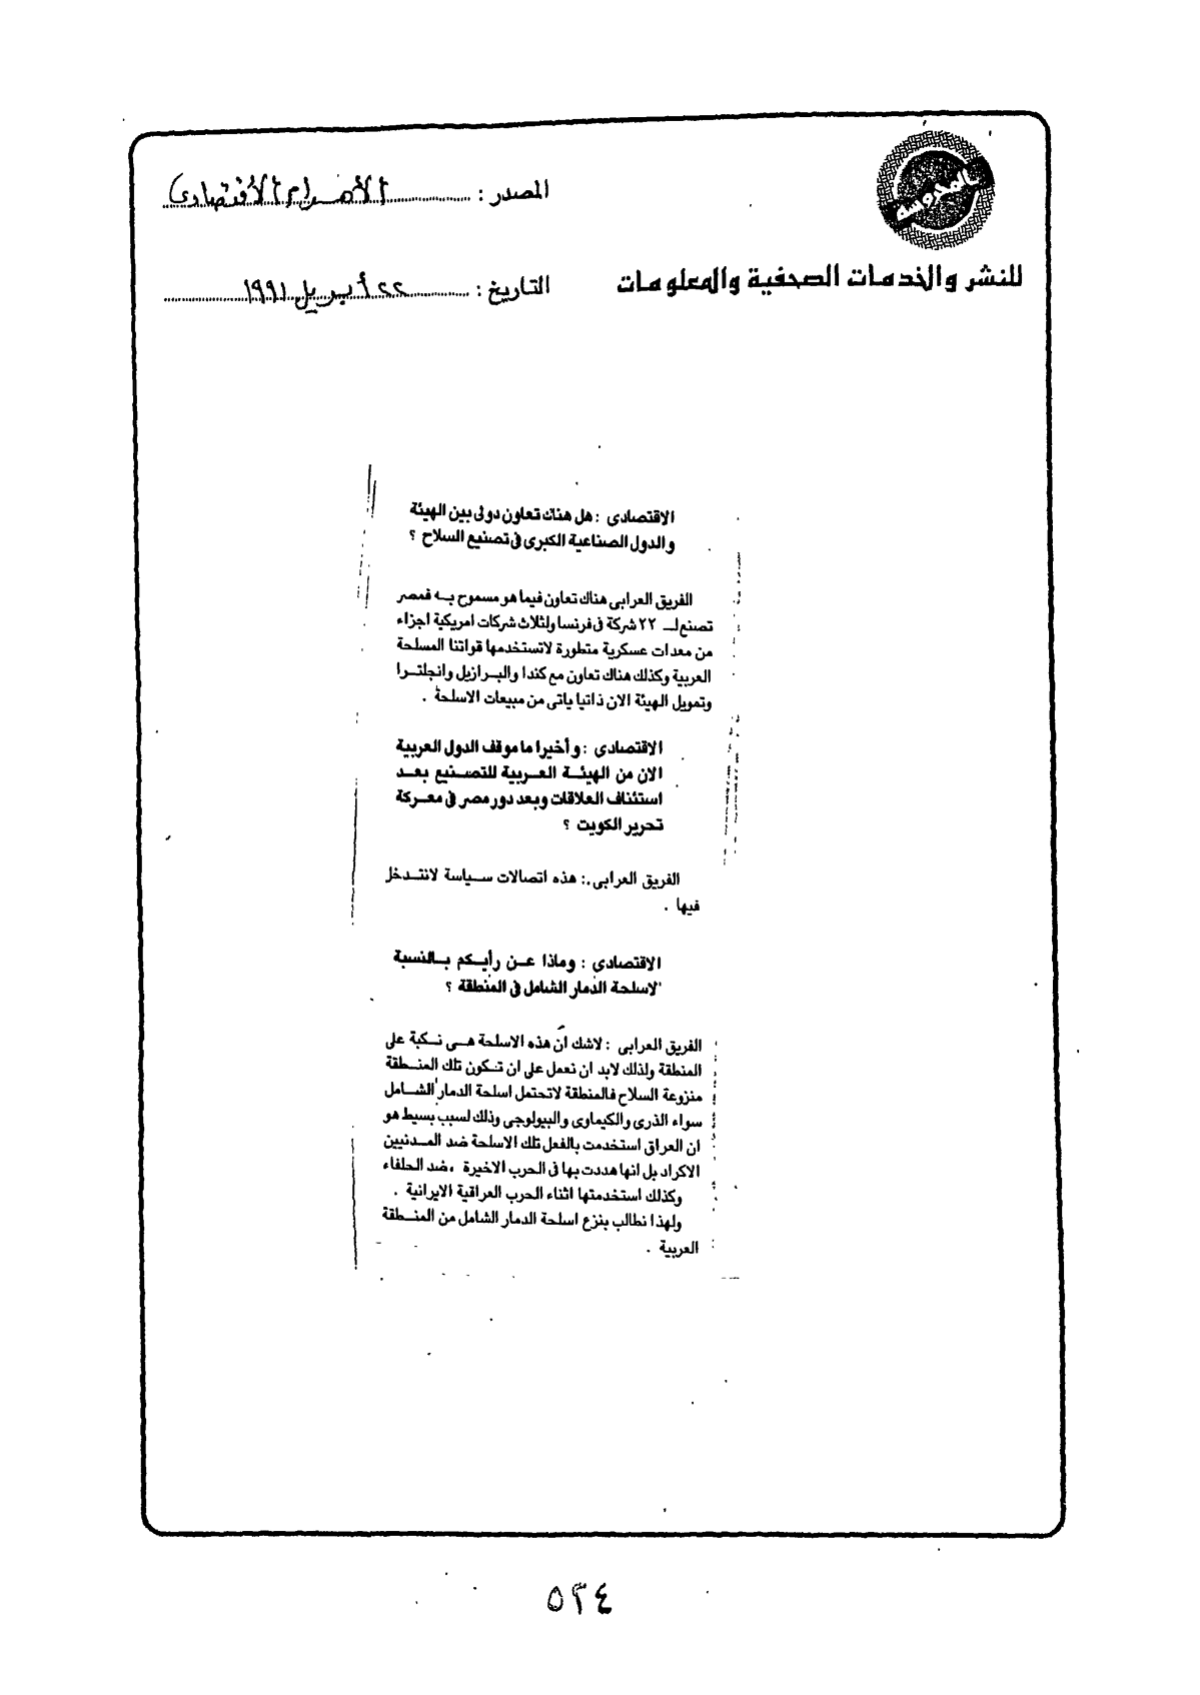 المحروسة
المصدر : الأهرام الاقتصادى
للنشر والخدمات الصحفية والمعلومات
التاريخ : ٢٢ أبريل ١٩٩١
الاقتصادى : هل هناك تعاون دولى بين الهيئة
والدول الصناعية الكبرى فى تصنيع السلاح ؟
الفريق العرابى هناك تعاون فيما هو مسموح به فمصر
تصنع لـ ٢٢ شركة فى فرنسا ولثلاث شركات امريكية اجزاء
من معدات عسكرية متطورة لاتستخدمها قواتنا المسلحة
العربية وكذلك هناك تعاون مع كندا والبرازيل وانجلترا
وتمويل الهيئة الان ذاتيا ياتى من مبيعات الاسلحة .
الاقتصادى : وأخيرا ماموقف الدول العربية
الان من الهيئة العربية للتصنيع بعد
استئناف العلاقات وبعد دور مصر فى معركة
تحرير الكويت ؟
الفريق العرابى : هذه اتصالات سياسة لانتدخل
فيها .
الاقتصادى : وماذا عن رأيكم بالنسبة
لاسلحة الدمار الشامل فى المنطقة ؟
الفريق العرابى : لاشك ان هذه الاسلحة هى نكبة على
المنطقة ولذلك لابد ان نعمل على ان تكون تلك المنطقة
منزوعة السلاح فالمنطقة لاتحتمل اسلحة الدمار الشامل
سواء الذرى والكيماوى والبيولوجى وذلك لسبب بسيط هو
ان العراق استخدمت بالفعل تلك الاسلحة ضد المدنيين
الاكراد بل انها هددت بها فى الحرب الاخيرة ، ضد الحلفاء
وكذلك استخدمتها اثناء الحرب العراقية الايرانية .
ولهذا نطالب بنزع اسلحة الدمار الشامل من المنطقة
العربية .
٥٢٤